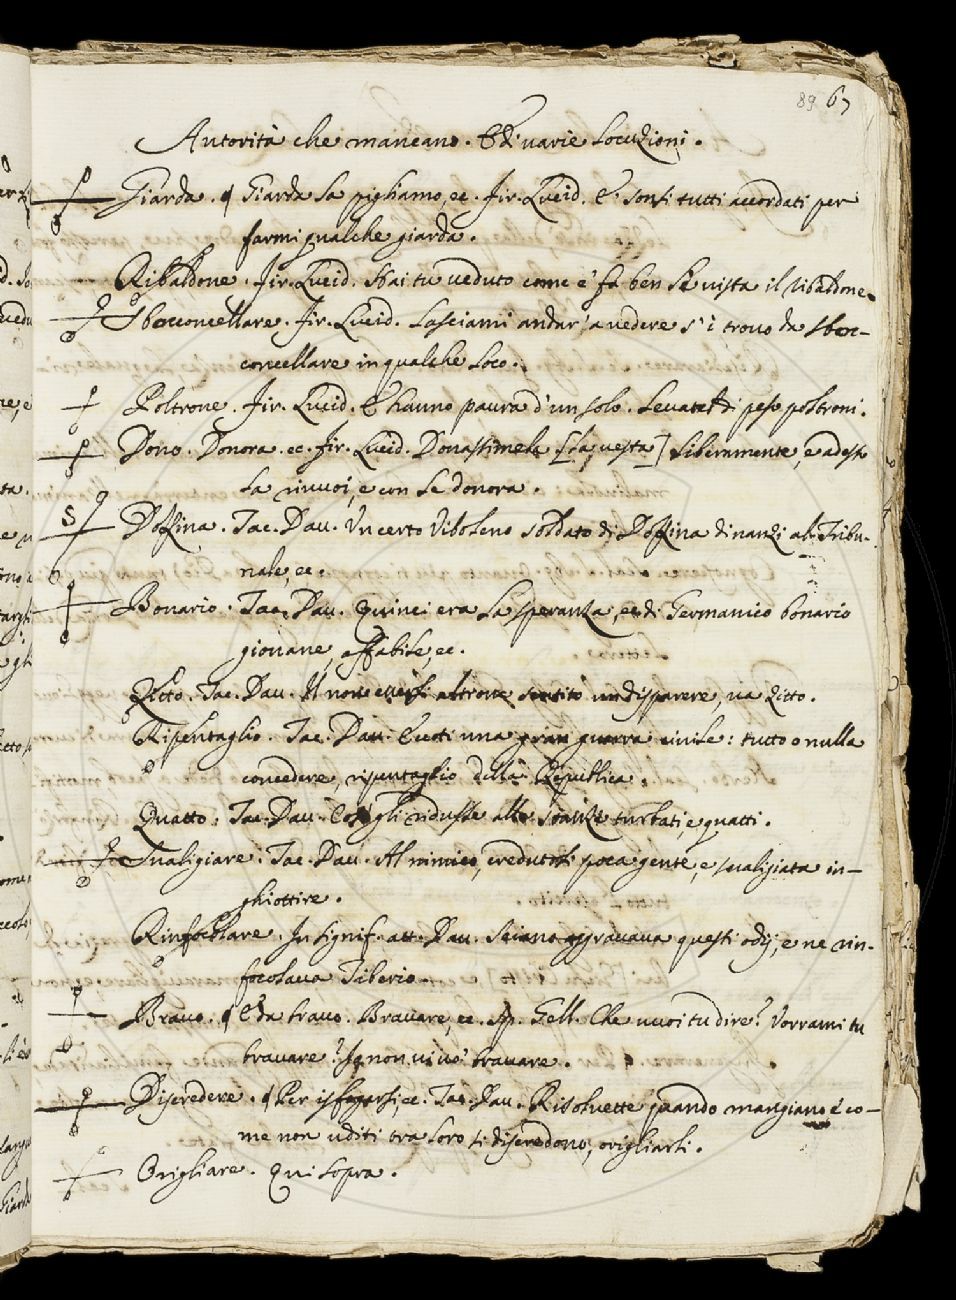 89 67
Autorità che mancano. E di varie Locuzioni.
Giarda. ¶ Giarda la pigliamo, ec. Fir. Lucid. E' sonsi tutti accordati per
farmi qualche giarda.
Ribaldone. Fir. Lucid. Hai tu veduto come e' fa ben la vista il ribaldone.
Sbocconcellare. Fir. Lucid. Lasciami andar' a vedere s' i trovo da sboc-
concellare in qualche loco.
Poltrone. Fir. Lucid. E hanno paura d'un solo. Levatel di peso poltroni.
Dono. Donora. ec. Fir. Lucid. Donastimela [la vesta] liberamente, e adesso
la rivuoi, e con le donora.
S Dozzina. Tac. Dav. Un certo Viboleno soldato di Dozzina dinanzi al Tribu-
nale, ec.
Bonario. Tac. Dav. Quinci era la speranza, ec. di Germanico bonario
giovane, affabile, ec.
Zitto. Tac. Dav. Il non essersi altrove sentito un disparere, un zitto.
Ripentaglio. Tac. Dav. Eccoti una gran guerra civile: tutto o nulla
concedere, ripentaglio della Republica.
Quatto. Tac. Dav. Così gli ridusse alle stanze turbati, e quatti.
Svaligiare. Tac. Dav. Al nimico, credutosi poca gente, e svaligiata in-
ghiottire.
Rinfocolare. In signif. att. Dav. Seiano aggravava questi odij, e ne rin-
focolava Tiberio.
Bravo. ¶ E da bravo. Bravare, ec. Sp. Gell. Che vuoi tu dire? Vorrami tu
bravare? Io non vivo' bravare.
Discredere. ¶ Per isfogarsi, ec. Tac. Dav. Risolvette quando mangiano e co-
me non uditi tra loro si discredono, origliarli.
Origliare. Qui sopra.